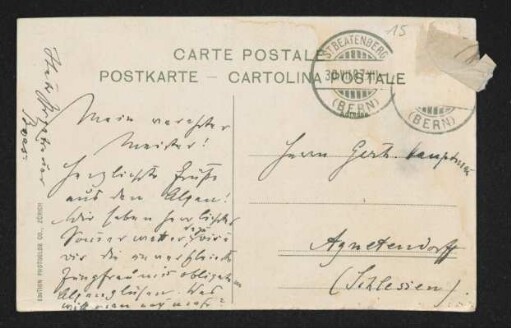 15
CARTE POSTALE
POSTKARTE – CARTOLINA POSTALE
ST BEATENBERG
(BERN)
(BERN)
Mein verehrter
Meister!
Herzlichste Grüße
aus den Alpen!
Wir haben herrlichstes
Sommerwetter
wir die
Jungfrau mit obligatem
Alpenglühen. Was
will man noch mehr?
Herrn Gerh. Hauptmann
Agnetendorf
(Schlesien)
EDITION PHOTOGLOB CO., ZÜRICH